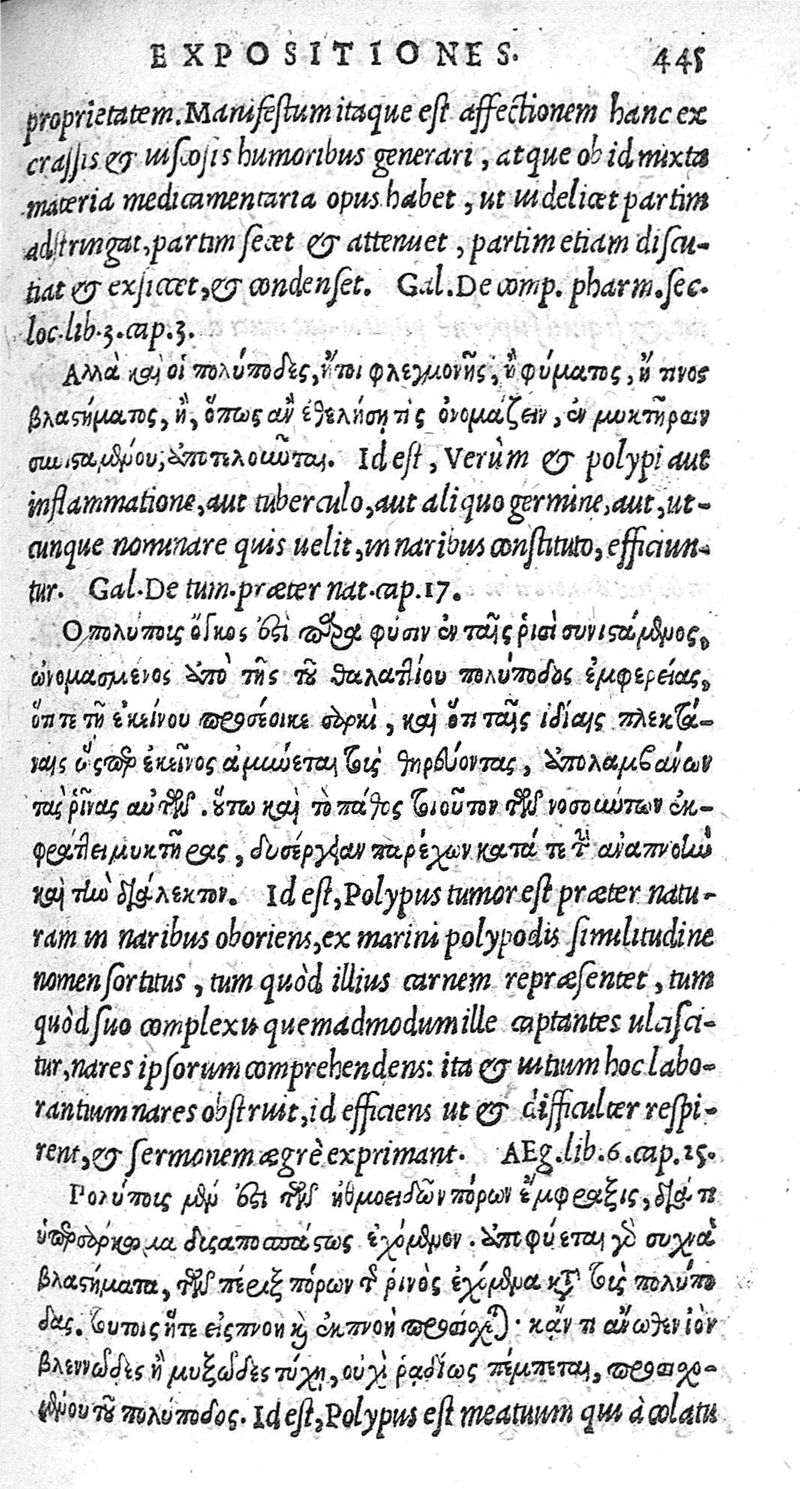 EXPOSITIONES. 445
proprietatem. Manifestum itaque est affectionem hanc ex
crassis & uiscosis humoribus generari, atque ob id mixta
materia medicamentaria opus habet, ut uidelicet partim
adstringat, partim secet & attenuet, partim etiam discu-
tiat & exsiccet, & condenset. Gal. De comp. pharm. sec.
loc. lib. 3. cap. 3.
Αλλὰ καὶ οἱ πολύποδες, ἤτοι φλεγμονῆς, ἢ φύματος, ἤ τινος
βλαστήματος, ἢ, ὅπως ἂν ἐθελήσῃ τὶς ὀνομάζειν, ἐν μυκτῆρσιν
συνισταμένου, ἀποτελοῦνται. Id est, Verùm & polypi aut
inflammatione, aut tuberculo, aut aliquo germine, aut, ut-
cunque nominare quis uelit, in naribus constituto, efficiun-
tur. Gal. De tum. præter nat. cap. 17.
Ο πολύποις ὄγκος ἐστὶ παρὰ φύσιν ἐν ταῖς ῥισὶ συνιστάμενος,
ὠνομασμένος ἀπὸ τῆς τοῦ θαλαττίου πολύποδος ἐμφερείας,
ὅτι τε τῇ ἐκείνου προσέοικε σαρκὶ, καὶ ὅτι ταῖς ἰδίαις πλεκτά-
ναις ὥςπερ ἐκεῖνος ἀμύνεται τοὺς θηρεύοντας, ἀπολαμβάνων
τὰς ῥῖνας αὐτῶν. οὕτω καὶ τὸ πάθος τοιοῦτον τῶν νοσούντων ἐκ-
φράττει μυκτῆρας, δυσέργειαν παρέχων κατά τε τὴν ἀναπνοὴν
καὶ τὴν διάλεκτον. Id est, Polypus tumor est præter natu-
ram in naribus oboriens, ex marini polypodis similitudine
nomen sortitus, tum quòd illius carnem repræsentet, tum
quòd suo complexu quemadmodum ille captantes ulcisci-
tur, nares ipsorum comprehendens: ita & uitium hoc labo-
rantium nares obstruit, id efficiens ut & difficulter respi-
rent, & sermonem ægrè exprimant. AEg. lib. 6. cap. 25.
Πολύποις μέν ἐστι τῶν ἠθμοειδῶν πόρων ἔμφραξις, διά τι
ὑπερσάρκωμα ἐχόμενον. ἀπιφύεται γὰρ συχνὰ
βλαστήματα, τῶν πέριξ πόρων τῆς ῥινὸς ἐχόμενα κατὰ τοὺς πολύπο
δας. τούτοις ἥτε εἰςπνοὴ καὶ ἐκπνοὴ · κἄν τι ἄνωθεν ἰὸν
βλεννῶδες ἢ μυξῶδες τύχῃ, οὐχὶ ῥᾳδίως πέμπεται,
τοῦ πολύποδος. Id est, Polypus est meatuum qui à colatu